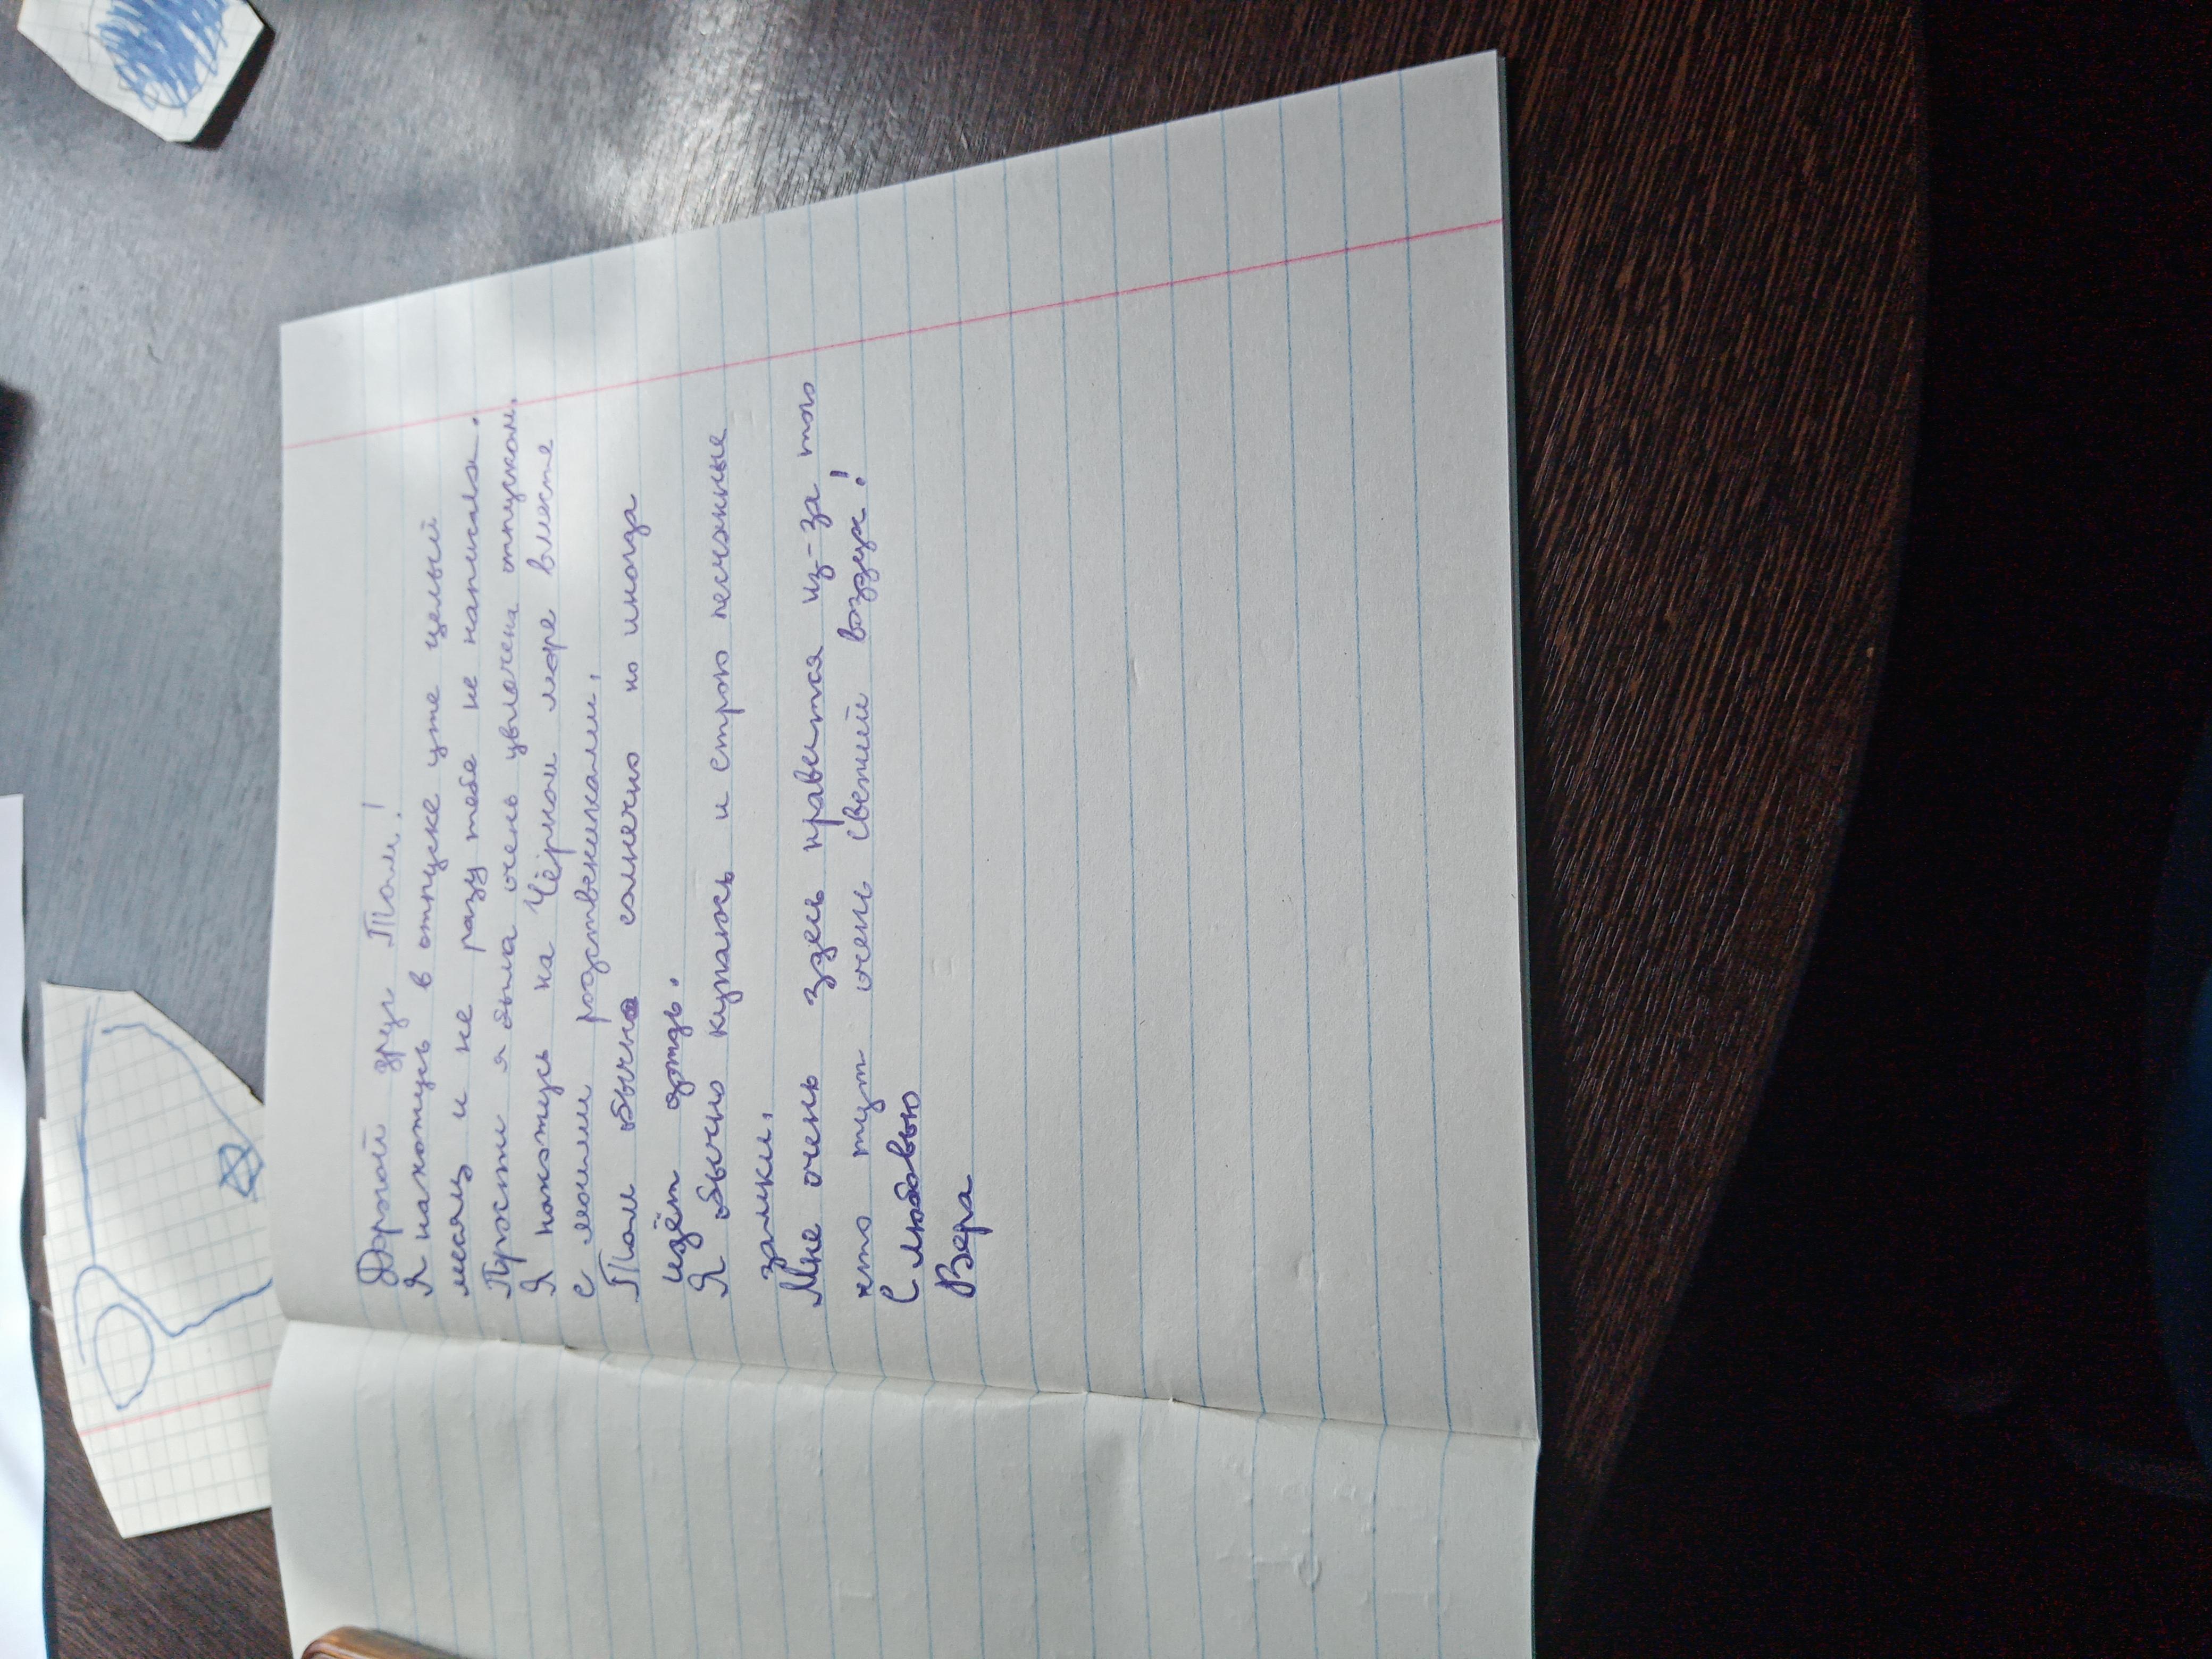 Дорогой друг Том!
Я нахожусь в отпуске уже целый
месяц и не разу тебе не написала.
Прости я была очень увлечена отпуском.
Я нахожусь на Чёрном море вместе
с моими родственниками.
Там обычно солнечно но иногда
идёт дождь.
Я обычно купаюсь и строю песчаные
замки.
Мне очень здесь нравится из-за того
что тут очень свежий воздух!
С любовью
Вера